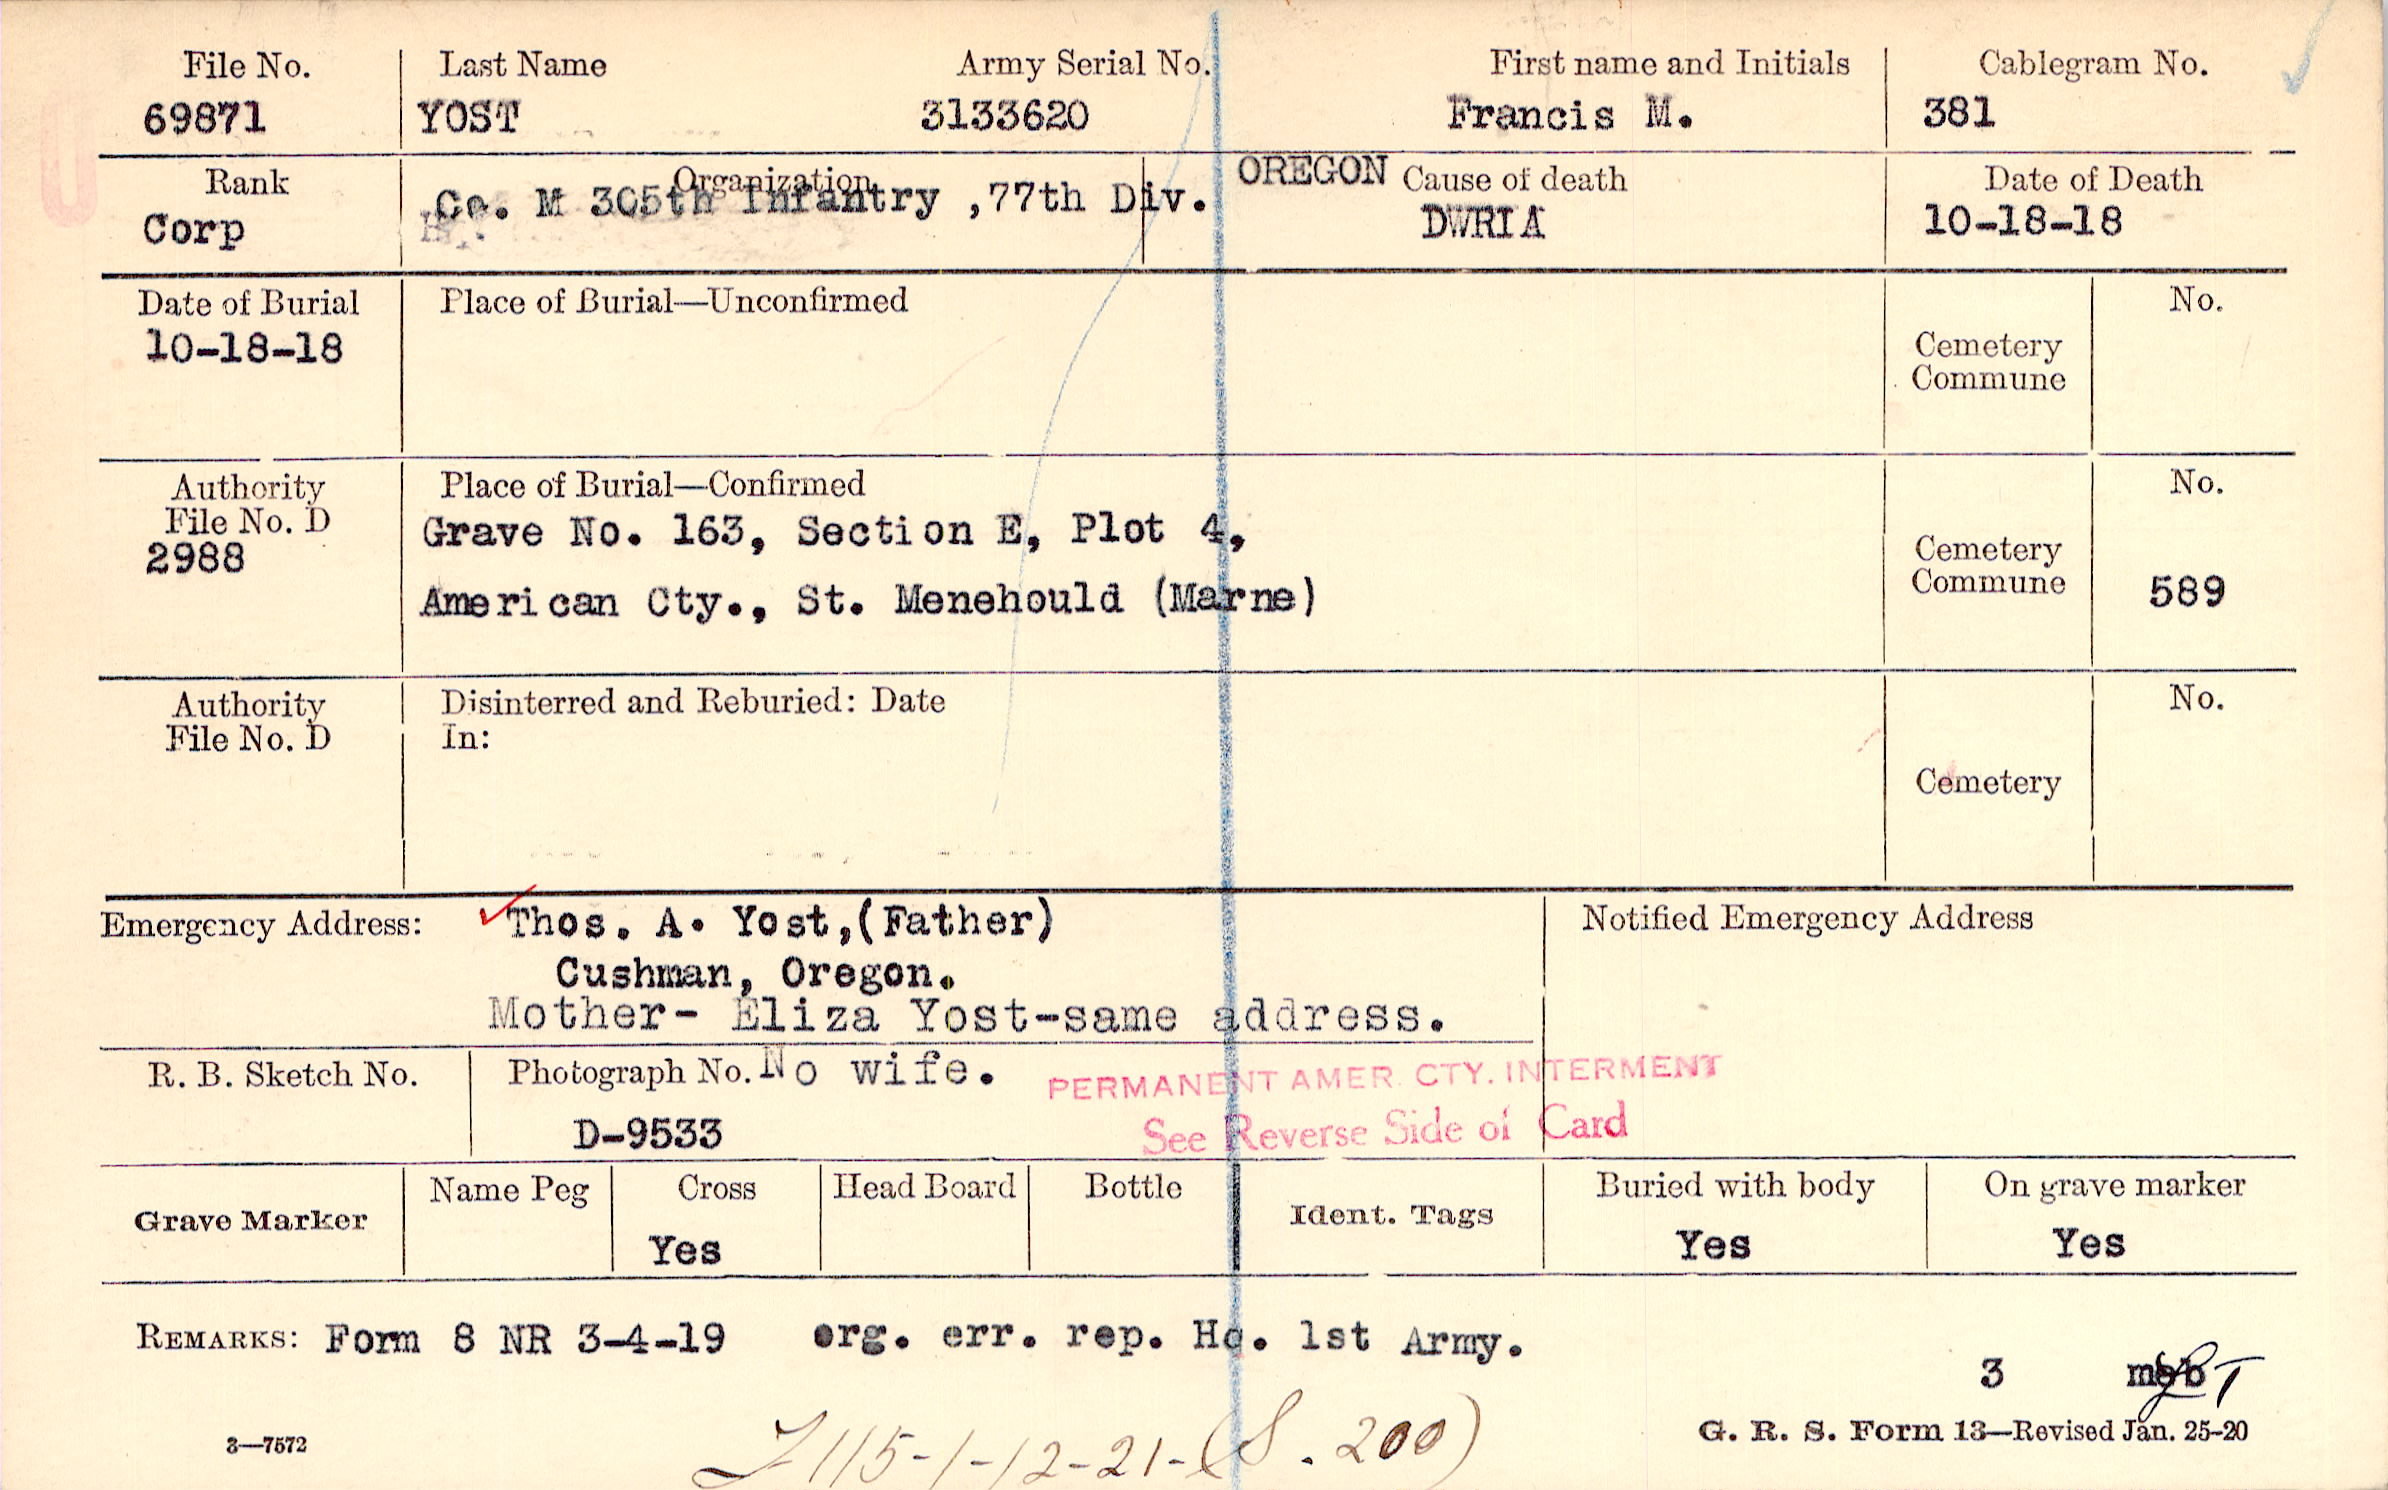 File No. Last Name Army Serial No. First name and Initials Cablegram No.
69871 YOST 3133620 Francis M. 381
Rank Organization OREGON Cause of death Date of Death
Corp Co. M 305th Infantry ,77th Div. DWRIA 10-18-18
Date of Burial Place of Burial—Unconfirmed No.
10-18-18
Cemetery
Commune
Authority Place of Burial—Confirmed No.
File No. D Grave No. 163, Section E, Plot 4,
2988
Cemetery
Commune 589
American Cty., St. Menehould (Marne)
Authority Disinterred and Reburied: Date No.
File No. D In:
Cemetery
Emergency Address: Thos. A. Yost,(Father) Notified Emergency Address
Cushman, Oregon.
Mother- Eliza Yost-same address.
R. B. Sketch No. Photograph No. No wife. PERMANENT AMER. CTY. INTERMENT
D-9533 See Reverse Side of Card
Grave Marker Name Peg Cross Head Board Bottle Ident. Tags Buried with body On grave marker
Yes Yes Yes
REMARKS: Form 8 NR 3-4-19 org. err. rep. Hq. 1st Army.
3
115-1-12-21-(S. 200)
3—7572 G. R. S. Form 13—Revised Jan. 25-20